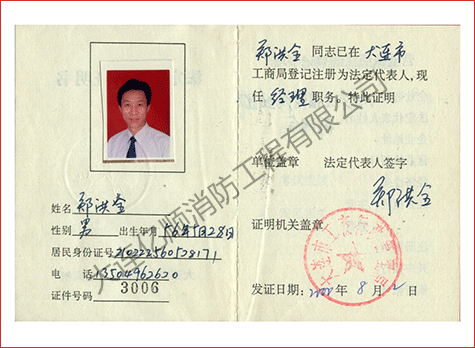 姓名 郑洪全
性别 男 出生年月 56年5月28日
居民身份证号 210222560528171
电 话 13504962620
证件号码 3006
郑洪全 同志已在 大连市
工商局登记注册为法定代表人,现
任 经理 职务,特此证明
单位盖章 法定代表人签字
郑洪全
证明机关盖章
发证日期: 2000年 8月 2日
大连亿顺消防工程有限公司